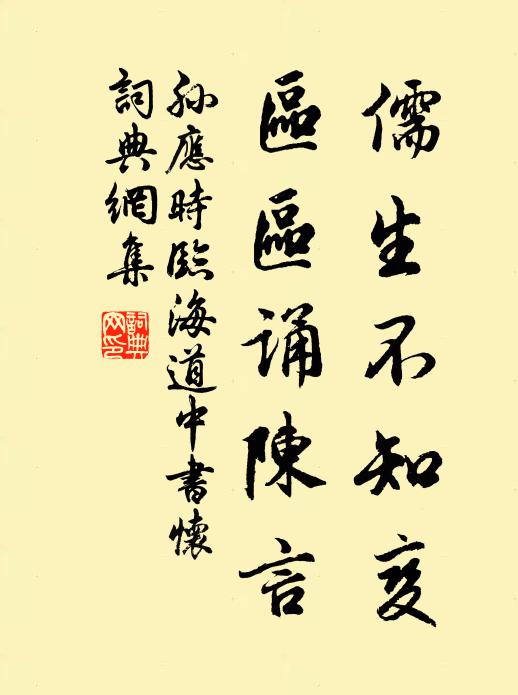 儒生不知变
區區誦陳言
孫應時臨海道中書懷
詞典網集